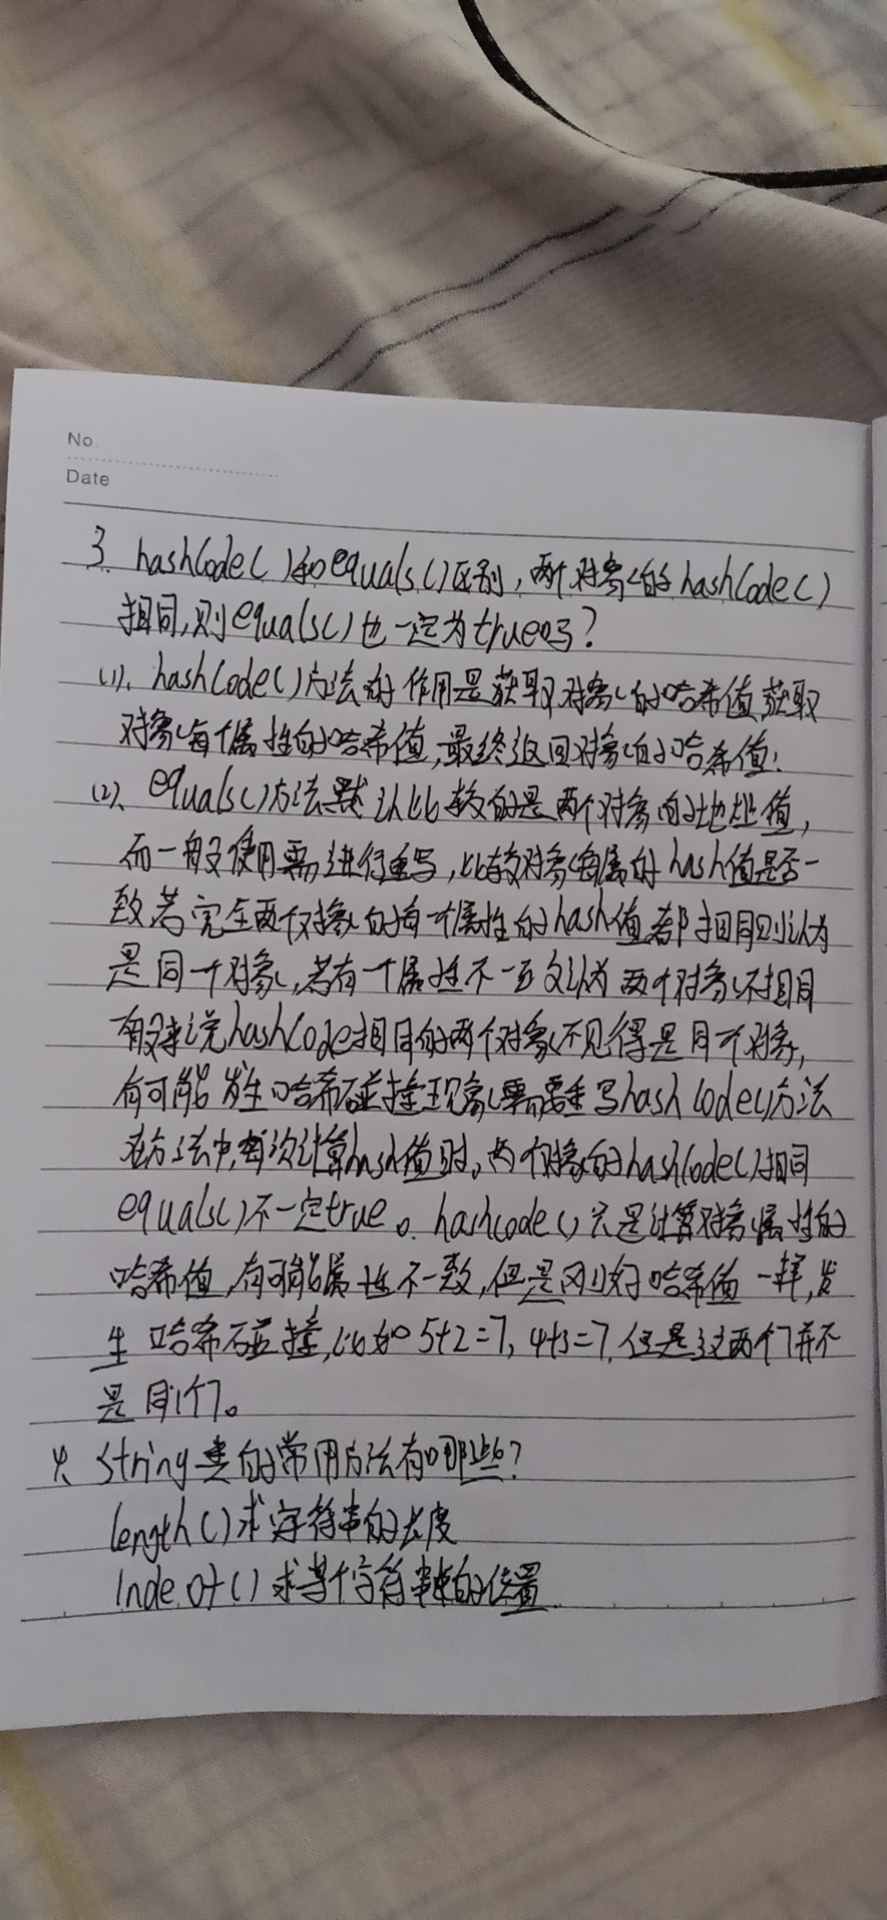 No.
Date
3. hashCode()和equals()区别,两个对象的hashCode()
相同,则equals()也一定为true吗?
(1)、hashCode()方法的作用是获取对象的哈希值,获取
对象每个属性的哈希值,最终返回对象的哈希值;
(2)、equals()方法默认比较的是两个对象的地址值,
而一般使用需进行重写,比较对象每属的hash值是否一
致若完全两个对象的每个属性的hash值都相同则认为
是同一个对象,若有一个属性不一致认为两个对象不相同
hashCode相同的两个对象不见得是同一个对象,
有可能发生哈希碰撞现象需要重写hashCode()方法
在方法中,每次计算hash值时。两个对象的hashCode()相同
equals()不一定true。hashcode()只是计算对象属性的
哈希值,有可能属性不一致,但是刚好哈希值一样,发
生哈希碰撞,比如5+2=7,4+3=7,但是这两个7并不
是同1个7。
4、String类的常用方法有哪些?
length()求字符串的长度
Inde.of()求某个字符串的位置.